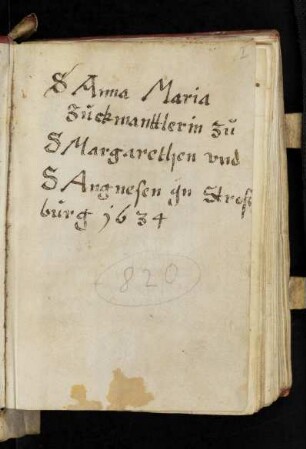 1
S Anna Maria
Zůckmanttlerin zů
S Margarethen vnd
S Angnesen jn Stroß
bůrg 1634
820